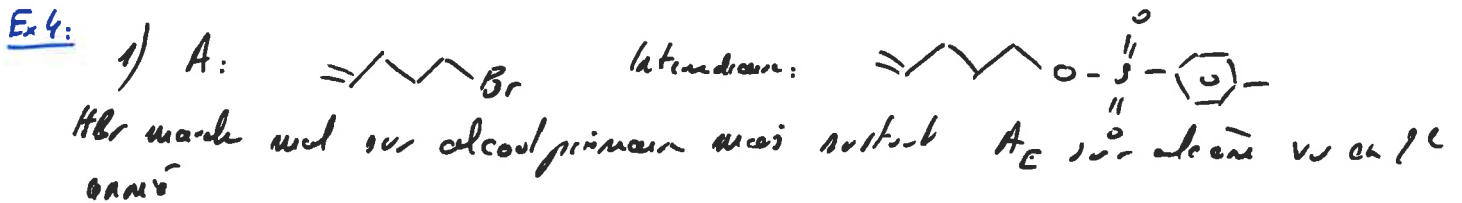 Ex 4:
1) A: Br Intermédiaire: O - S - O O
HBr marche mal sur alcool primaire mais surtout AE sur alcène vu en 1e
année